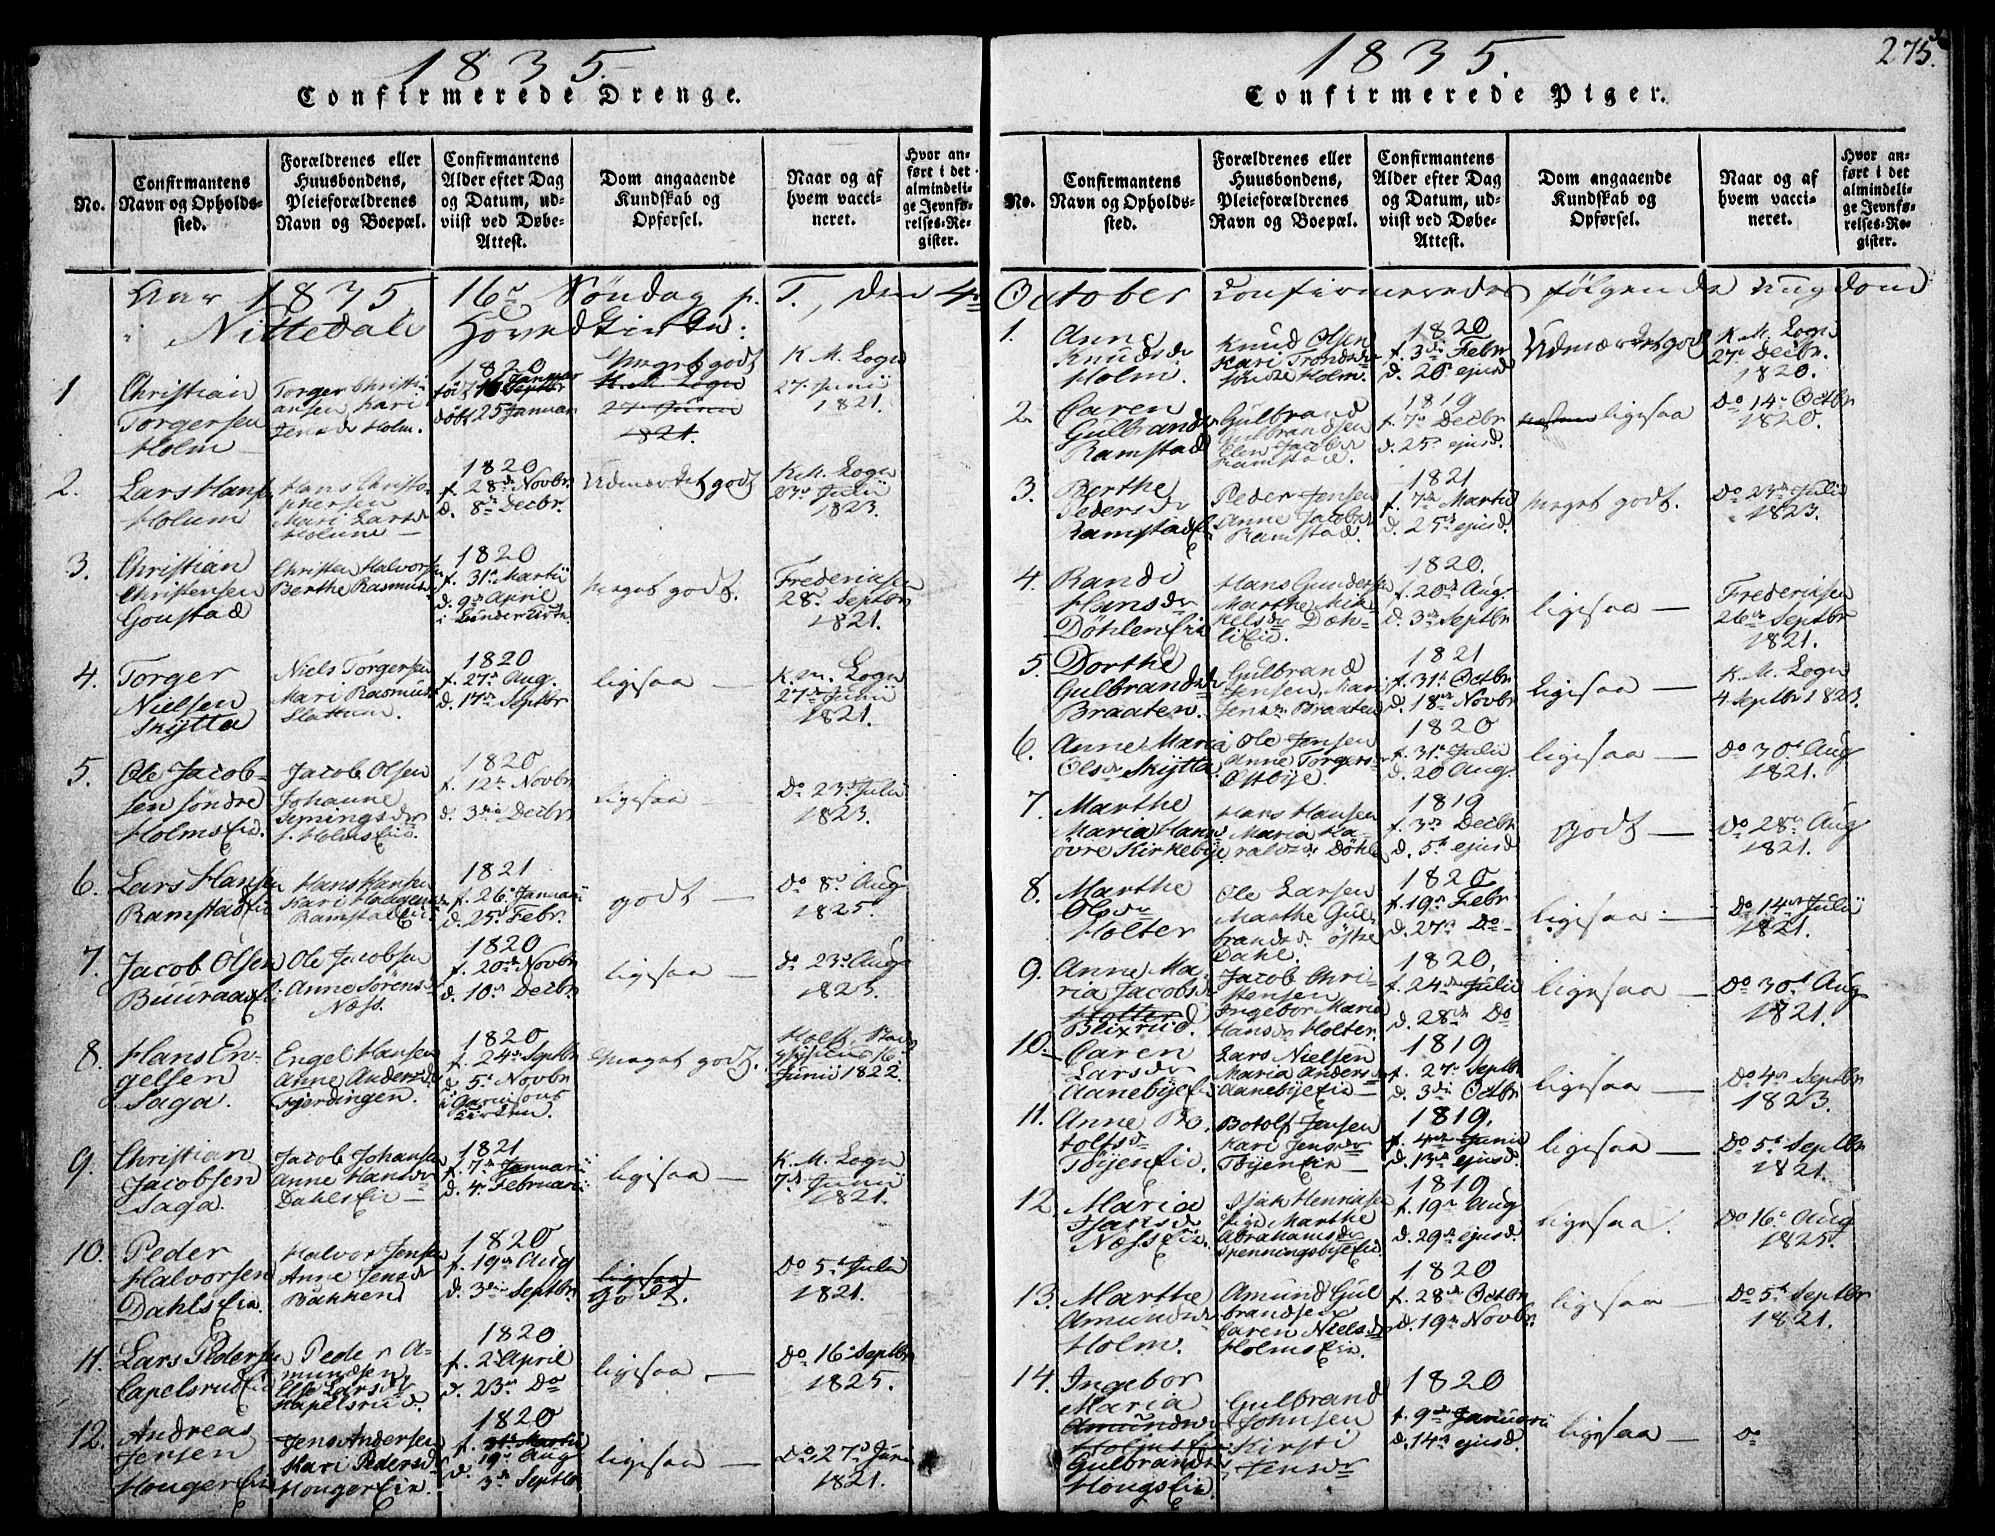 1835.
Confirmerede Drenge.
No.
Confirmantens Navn og Opholds-sted.
Forældrenes eller Huusbondens, Pleieforældrenes Navn og Boepæl.
Confirmantens Alder efter Dag og Datum, ud-viist ved Døbe-Attest.
Dom angaaende Kundskab og Opførsel.
Naar og af hvem vacci-neret.
Hvor an-ført i det almindeli-ge Jevnfø-relses-Re-gister.
Aar 1835, 16de Søndag p. T., den 4de
Nittedals Hovedkirke:
1
Christian
Torgersen
Holm
Torger Christi
ansen, Kari
Jensdr Holm.
1820
Januar
døbt 25 Januar
Meget godt
K. M. Logn
27de Junii
1821.
K. M. Logn
27. Junii
1821.
2.
Lars Hans
Holum
Hans Christo-
phersen
Mari Larsd
Holum
1820
f. 28de Novbr
d. 8de Decbr.
Udmærket godt
K. M. Logn
23de Julii
1823.
3.
Christian
Christensen
Goustad
Christen Halvorsen
Berthe Rasmusd
1820
f. 31te Martii
d. 9de April
Meget godt.
Frederiksen
28de Septbr
1821.
4.
Torger
Nielsen
Skytta
Niels Torgersen
Mari Rasmusd
Slattum.
1820
f. 27de Aug.
d. 17de Septbr
ligesaa
K. M. Logn
27de Junii
1821.
5.
Ole Jacob-
sen søndre
Holms Eie.
Jacob Olsen
Johanne
Jemingsdr
s. Holms Eie.
1820
f. 12te Novbr
d. 3die Decbr
ligesaa
Do 23de Julii
1823.
6.
Lars Hansen
Ramstad Eie
Hans Hansen
Kari
Ramstad Eie.
1821
f. 26de Januarii
d. 25de Febr.
godt
Do 8de Aug
1825.
7.
Jacob Olsen
Ole Jacobsen
Anne Sørensd
Næss.
1820
f. 20de Novbr
d. 10de Decbr.
ligesaa
do 23de Aug
1823.
8.
Hans En-
gelsen
Saga.
Engel Hansen
Anne Andersd
Fjerdingen.
1820
f. 24de Septbr
d. 5te Novbr
i Garnisons
Kirken.
Meget godt.
16
Junii 1822.
9.
Christian
Jacobsen
Saga.
Jacob Johansen
Anne Hansd
Dahls Eie
1821
f. 7de Januarii
d. 4de Februarii
ligesaa
K. M. Logn
7de Junii
1821.
10.
Peder
Halvorsen
Dahls Eie.
Halvor Jensen
Anne Jensdr
Bakken
1820
f. 19de Aug
d. 3die Septbr.
ligesaa
Godt.
Do 5te Julii
1821.
11.
Lars Pedersen
Capelsrud Eie
Peder A-
mundsen
Else Larsdr
Kapelsrud.
1820
f. 2de April
d. 23de Do
ligesaa
Do 16de Septbr
1825.
12.
Andreas
Jensen
Houger Eie
Jens Andersen
Kari Pedersd
Houger Eie.
1820
f. 31te Martii
19de Aug
d. 3de Septbr
ligesaa
Do 27de Junii
1821.
1835.
275.
Confirmerede Piger.
No.
Confirmantens Navn og Opholds-sted.
Forældrenes eller Huusbondens, Pleieforældrenes Navn og Boepæl.
Confirmantens Alder efter Dag og Datum, ud-viist ved Døbe-Attest.
Dom angaaende Kundskab og Opførsel.
Naar og af hvem vacci-neret.
Hvor an-ført i det almindeli-ge Jevnfø-relses-Re-gister.
October confirmeredes følgende Ungdom
1.
Anne
Knudsdr
Holm.
Knud Olsen
Kari Trondsdr
søndre Holm.
1820
f. 3die Febr
d. 20de ejusd.
Udmærket god
K. M. Logn
27de Decbr.
1820.
2.
Caren
Gulbrandsdr
Ramstad
Gulbrand
Gulbrandsen
Elen Jacobsdr
Ramstad.
1819
f. 7de Decbr
d. 25de ejusd.
ligesaa
Do 14de Octbr
1820.
3.
Berthe
Pedersdr
Ramstad E
Peder Jensen
Anne Jacobsdr
Ramstad.
1821
f. 7de Martii
d. 25de ejusd.
meget godt.
Do 23de Julii
1823.
4.
Randi
Hansdr
Døhlen Eie
Hans Gundersen
Marthe Mik-
kelsdr Døh-
li Eie.
1820.
f. 20de Aug.
d. 3die Septbr
ligesaa
Frederiksen
26de Septbr
1821.
5.
Dorthe
Gulbrandsdr
Braaten.
Gulbrand
Jensen, Mari
Jensdr Braaten
1821
f. 31te Octbr
d. 18de Novbr
Ligesaa
K. M. Logn
4 Septbr 1823.
6.
Anne Maria
Olsdr Skytta
Ole Jensen
Anne Torgers-
Østbye.
1820
f. 31te Julii
d. 20 Aug.
ligesaa
Do 30te Aug
1821.
7.
Marthe
Maria Hansd
øvre Kirkebye
Hans Hansen
Maria Ha-
raldsdr Døhle
1819
f. 3die Decbr
d. 5te ejusd
Godt
Do 28de Aug
1821.
8.
Marthe
Olsdr
Holter
Ole Larsen
Marthe Gul-
brandsdr østre
Dahl.
1820
f. 19de Febr
d. 27de Do
ligesaa
Do 14de Julii
1821.
9.
Anne Ma-
ria Jacobsdr
Holter
Blixrud.
Jacob Chri-
stensen
Ingebor Maria
Hansdr Holter.
1820.
f. 24de Julii
d. 28de Do
ligesaa
Do 30te Aug
1821.
10.
Caren
Larsdr
Aanebye Ei
Lars Nielsen
Maria Andersdr
Aanebye Eie
1819
f. 27de Septbr
d. 3die Octbr
ligesaa
Do 4de Septbr
1823.
11.
Anne Bo-
tolfsdr
Tøyen Eie.
Botolf Jensen
Kari Jensdr
Tøyen Eie
1819.
f. 4de Junii
d. 13de ejusd.
ligesaa
Do 5te Septbr
1821.
12.
Maria
Isaksdr
Næss Eie.
Isak Henriksen
Marthe
Abrahamsdr
Spenningsbye Eie
1819
f. 19de Aug
d. 29de ejusd.
ligesaa.
Do 16de Aug
1825.
13.
Marthe
Amundsdr
Holm.
Amund Gul
brandsen
Caren Nielsdr
Holms Eie.
1820
f. 28de Octbr
d. 19de Novbr.
ligesaa
Do 5te Septbr
1821.
14.
Ingebor
Maria
Amundsdr
Gulbrandsdr
Hougs Eie.
Gulbrand
Johnsen
Kirsti
Jensdr
1820
f. 9de Januarii
d. 14de ejusd.
ligesaa
Do